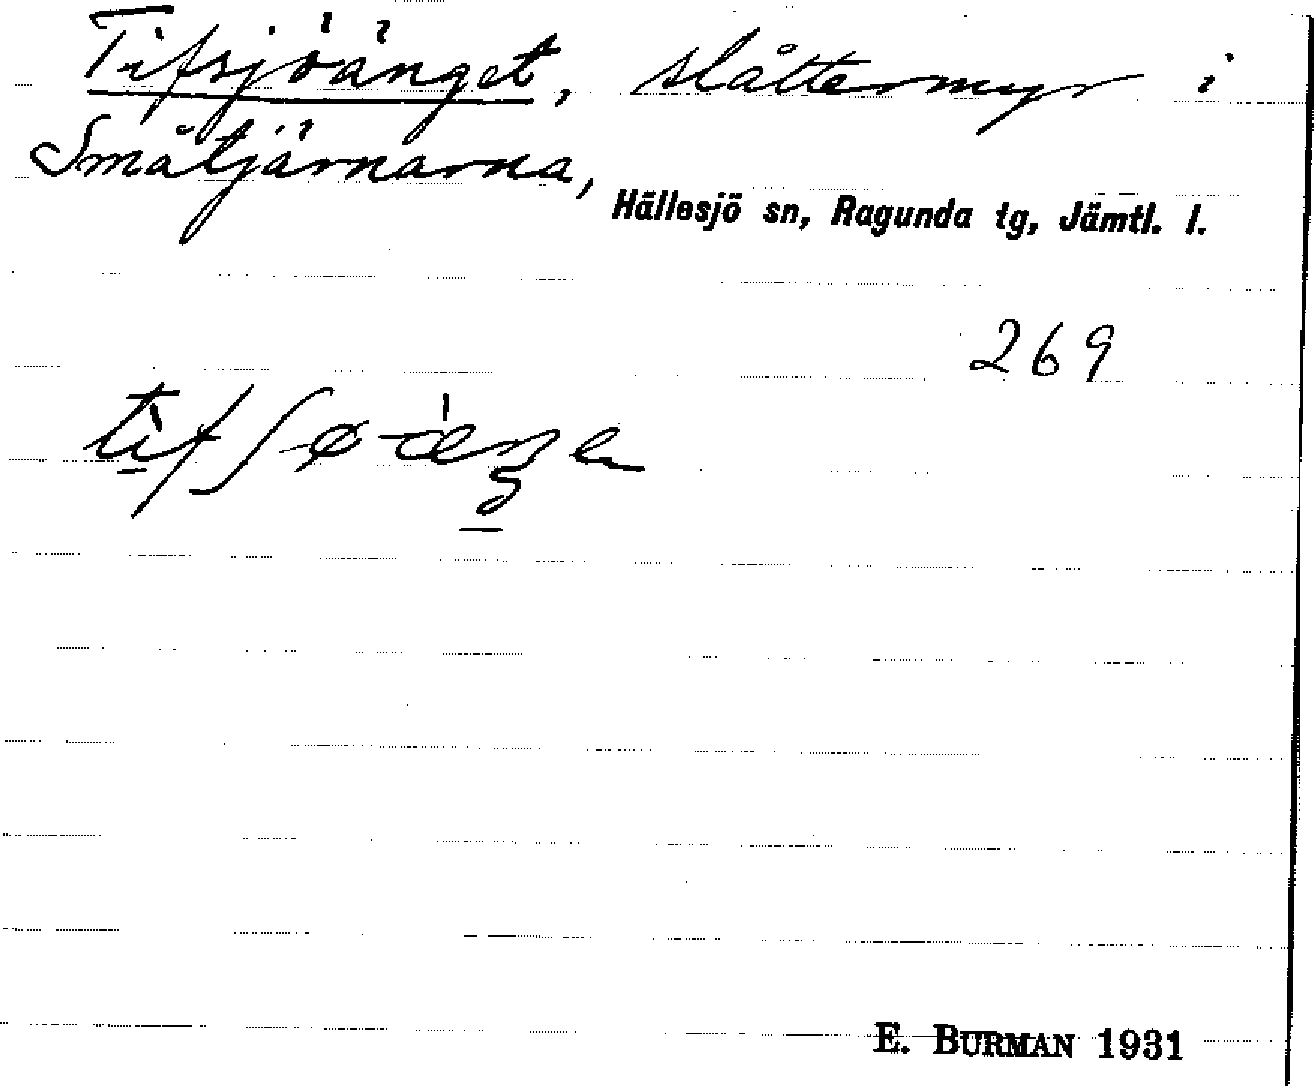 Tifsjöänget, slåttermyr i
Småtjärnarna,
Hällesjö sn, Ragunda tg, Jämtl. l.
269
E. BURMAN 1931